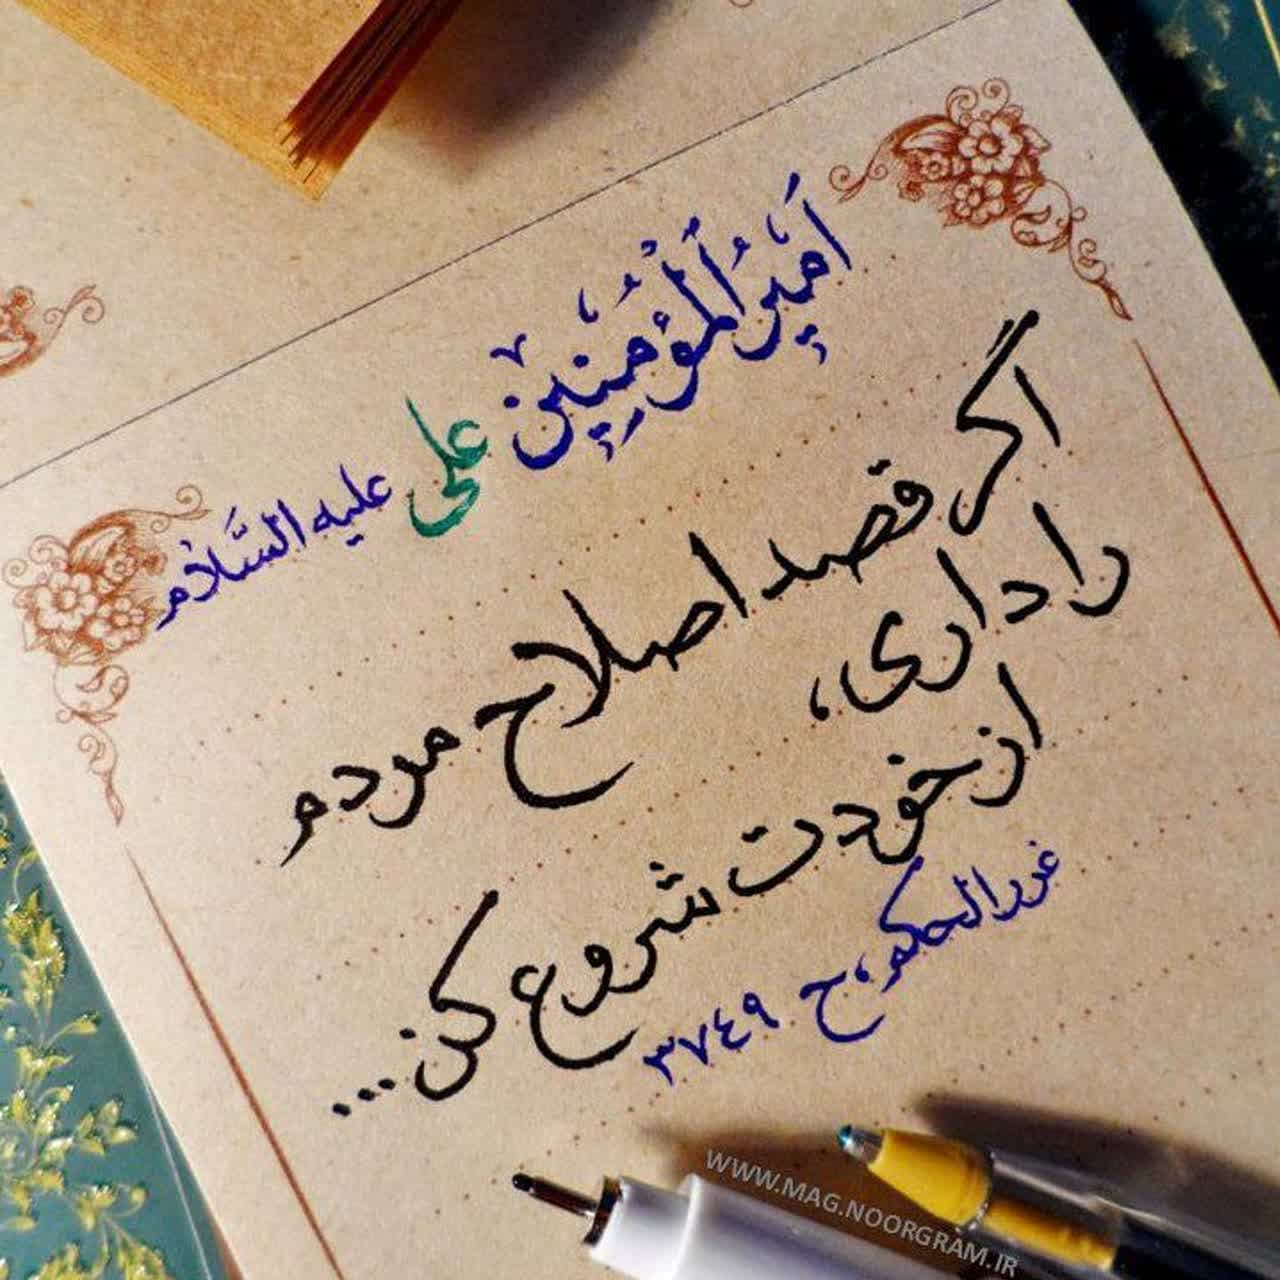 اَمیرُالْمُؤمِنین علی علیه السَّلام
اگر قصد اصلاح مردم
را داری،
از خودت شروع کن...
غررالحکم، ح ٣٧٤٩
WWW.MAG.NOORGRAM.IR